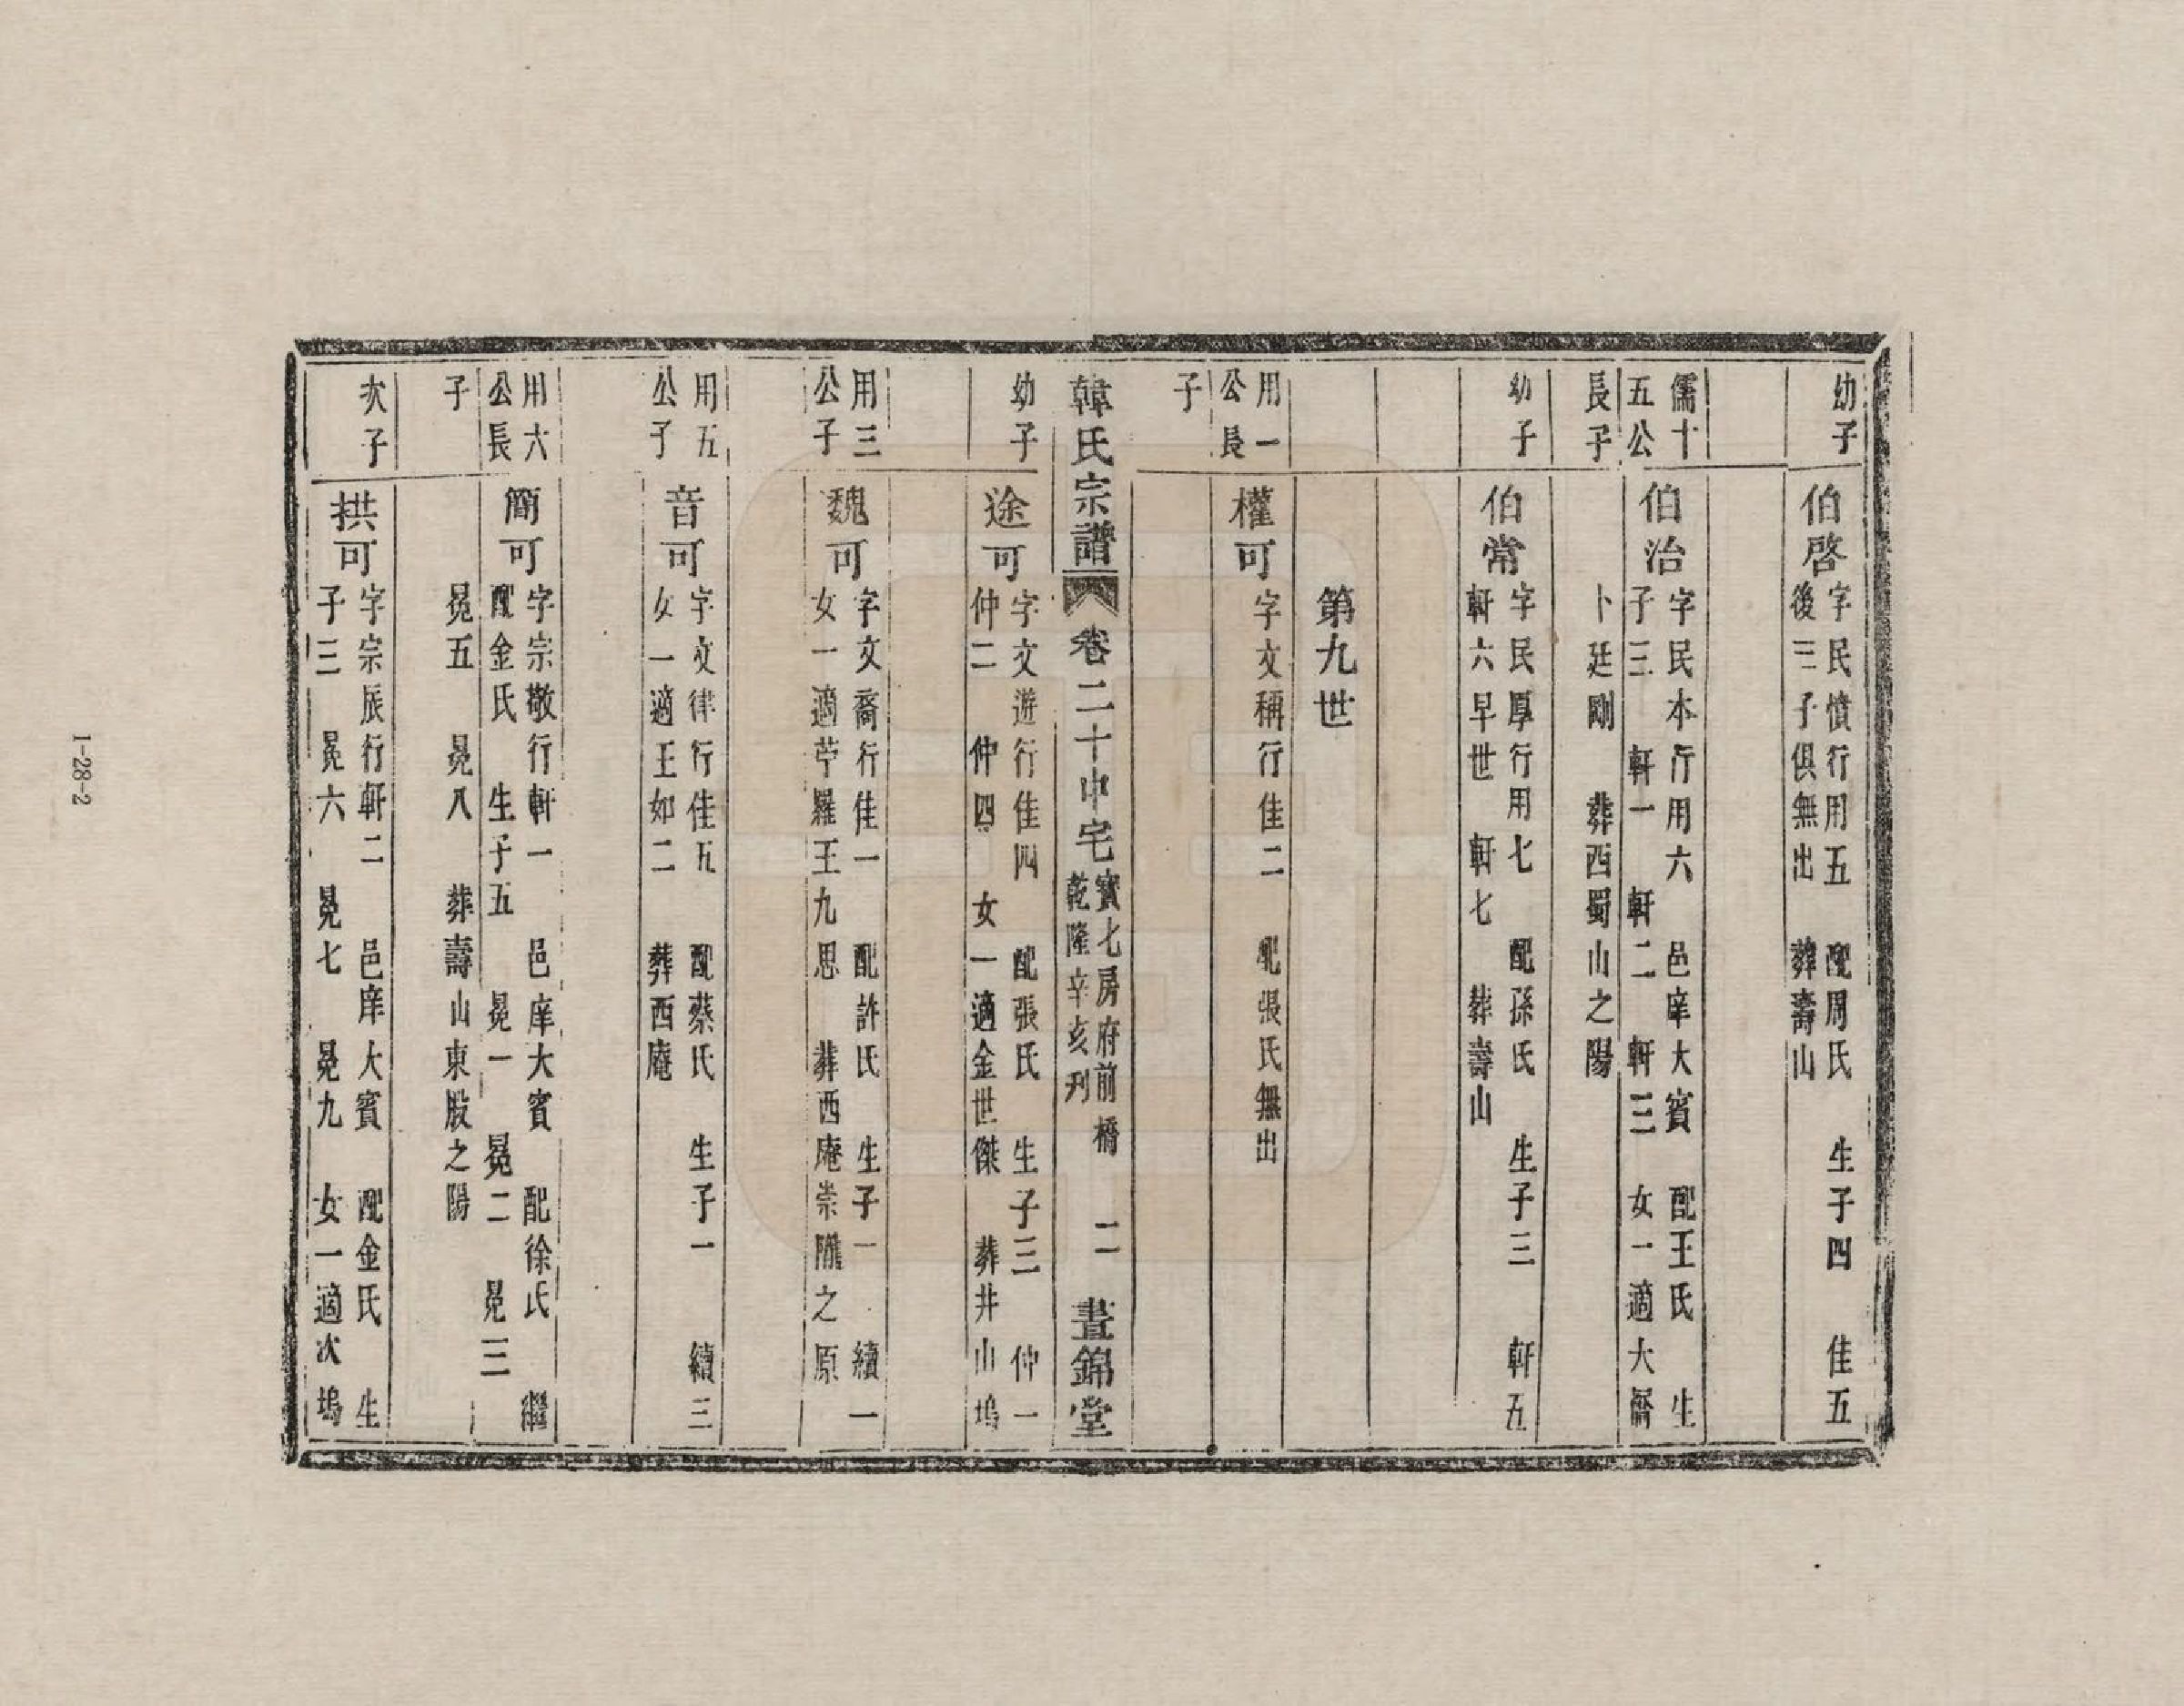 幼子
伯啓
字民憤行用五　配周氏　生子四　佳五
後三子俱無出　葬壽山
儒十
五公
長子
伯治
字民本行用六　邑庠大賓　配王氏　生
子三　軒一　軒二　軒三　女一適大㵎
卜廷剛　葬西蜀山之陽
幼子
伯常
字民厚行用七　配孫氏　生子三　軒五
軒六早世　軒七　葬壽山
第九世
用一
公長
子
權可
字文稱行佳二　配張氏無出
韓氏宗譜　卷二十中宅
寶七房府前橋
乾隆辛亥刋
二　晝錦堂
幼子
途可
字文遊行佳四　配張氏　生子三　仲一
仲二　仲四　女一適金世傑　葬井山塢
用三
公子
魏可
字文裔行佳一　配許氏　生子一　續一
女一適苧羅王九思　葬西庵崇隴之原
用五
公子
音可
字文律行佳五　配蔡氏　生子一　續三
女一適王如二　葬西庵
用六
公長
子
簡可
字宗敬行軒一　邑庠大賓　配徐氏　繼
配金氏　生子五　冕一　冕二　冕三
冕五　冕八　葬壽山東股之陽
次子
拱可
字宗辰行軒二　邑庠大賓　配金氏　生
子三　冕六　冕七　冕九　女一適次塢
1-28-2